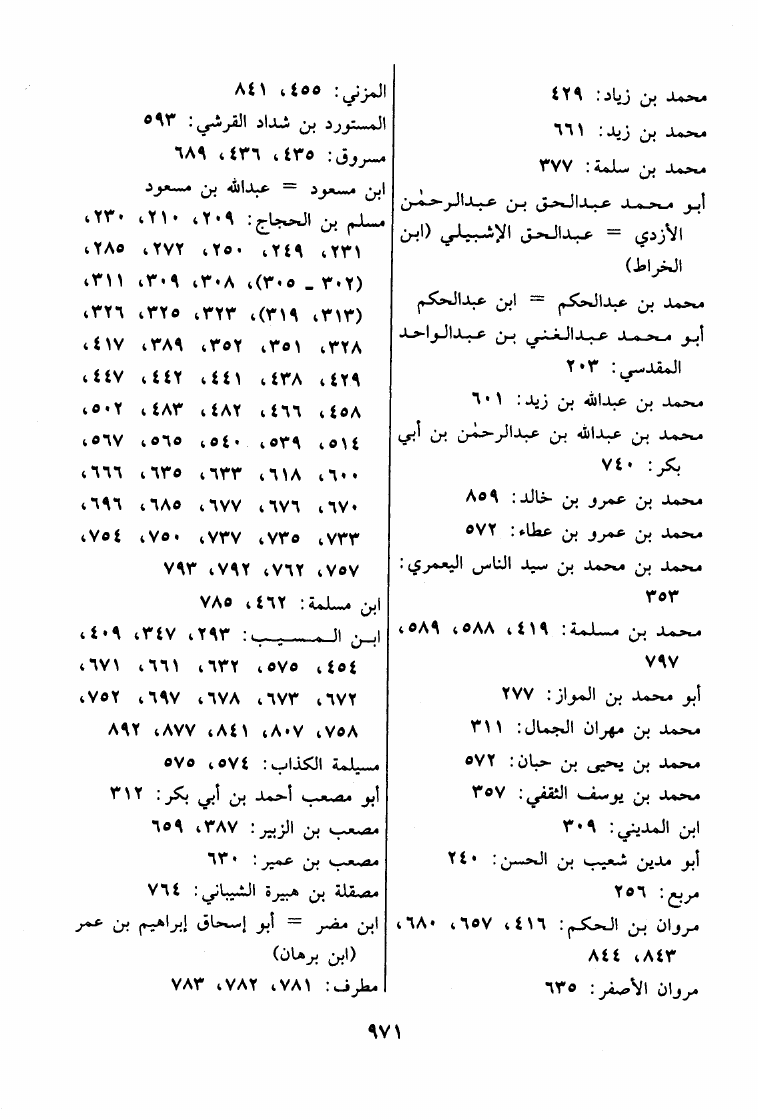 محمد بن زياد: ٤٢٩
محمد بن زيد: ٦٦١
محمد بن سلمة: ٣٧٧
أبو محمد عبدالحق بن عبدالرحمٰن
الأزدي = عبدالحق الإشبيلي (ابن
الخراط)
محمد بن عبدالحكم = ابن عبدالحكم
أبو محمد عبدالغني بن عبدالواحد
المقدسي: ٢٠٣
محمد بن عبدالله بن زيد: ٦٠١
محمد بن عبدالله بن عبدالرحمٰن بن أبي
بكر: ٧٤٠
محمد بن عمرو بن خالد: ٨٥٩
محمد بن عمرو بن عطاء: ٥٧٢
محمد بن محمد بن سيد الناس اليعمري:
٣٥٣
محمد بن مسلمة: ٤١٩، ٥٨٨، ٥٨٩،
٧٩٧
أبو محمد بن المواز: ٢٧٧
محمد بن مهران الجمال: ٣١١
محمد بن يحيى بن حبان: ٥٧٢
محمد بن يوسف الثقفي: ٣٥٧
ابن المديني: ٣٠٩
أبو مدين شعيب بن الحسن: ٢٤٠
مربع: ٢٥٦
مروان بن الحكم: ٤١٦، ٦٥٧، ٦٨٠،
٨٤٣، ٨٤٤
مروان الأصفر: ٦٣٥
المزني: ٤٥٥، ٨٤١
المستورد بن شداد القرشي: ٥٩٣
مسروق: ٤٣٥، ٤٣٦، ٦٨٩
ابن مسعود = عبدالله بن مسعود
مسلم بن الحجاج: ٢٠٩، ٢١٠، ٢٣٠،
٢٣١، ٢٤٩، ٢٥٠، ٢٧٢، ٢٨٥،
(٣٠٢ ـ ٣٠٥)، ٣٠٨، ٣٠٩، ٣١١،
(٣١٣، ٣١٩)، ٣٢٣، ٣٢٥، ٣٢٦،
٣٢٨، ٣٥١، ٣٥٢، ٣٨٩، ٤١٧،
٤٢٩، ٤٣٨، ٤٤١، ٤٤٢، ٤٤٧،
٤٥٨، ٤٦٦، ٤٨٢، ٤٨٣، ٥٠٢،
٥١٤، ٥٣٩، ٥٤٠، ٥٦٥، ٥٦٧،
٦٠٠، ٦١٨، ٦٣٣، ٦٣٥، ٦٦٦،
٦٧٠، ٦٧٦، ٦٧٧، ٦٨٥، ٦٩٦،
٧٣٣، ٧٣٥، ٧٣٧، ٧٥٠، ٧٥٤،
٧٥٧، ٧٦٢، ٧٩٢، ٧٩٣
ابن مسلمة: ٤٦٢، ٧٨٥
ابن المسيب: ٢٩٣، ٣٤٧، ٤٠٩،
٤٥٤، ٥٧٥، ٦٣٢، ٦٦١، ٦٧١،
٦٧٢، ٦٧٣، ٦٧٨، ٦٩٧، ٧٥٢،
٧٥٨، ٨٠٧، ٨٤١، ٨٧٧، ٨٩٢
مسيلمة الكذاب: ٥٧٤، ٥٧٥
أبو مصعب أحمد بن أبي بكر: ٣١٢
مصعب بن الزبير: ٣٨٧، ٦٥٩
مصعب بن عمير: ٦٣٠
مصقلة بن هبيرة الشيباني: ٧٦٤
ابن مضر = أبو إسحاق إبراهيم بن عمر
(ابن برهان)
مطرف: ٧٨١، ٧٨٢، ٧٨٣
٩٧١